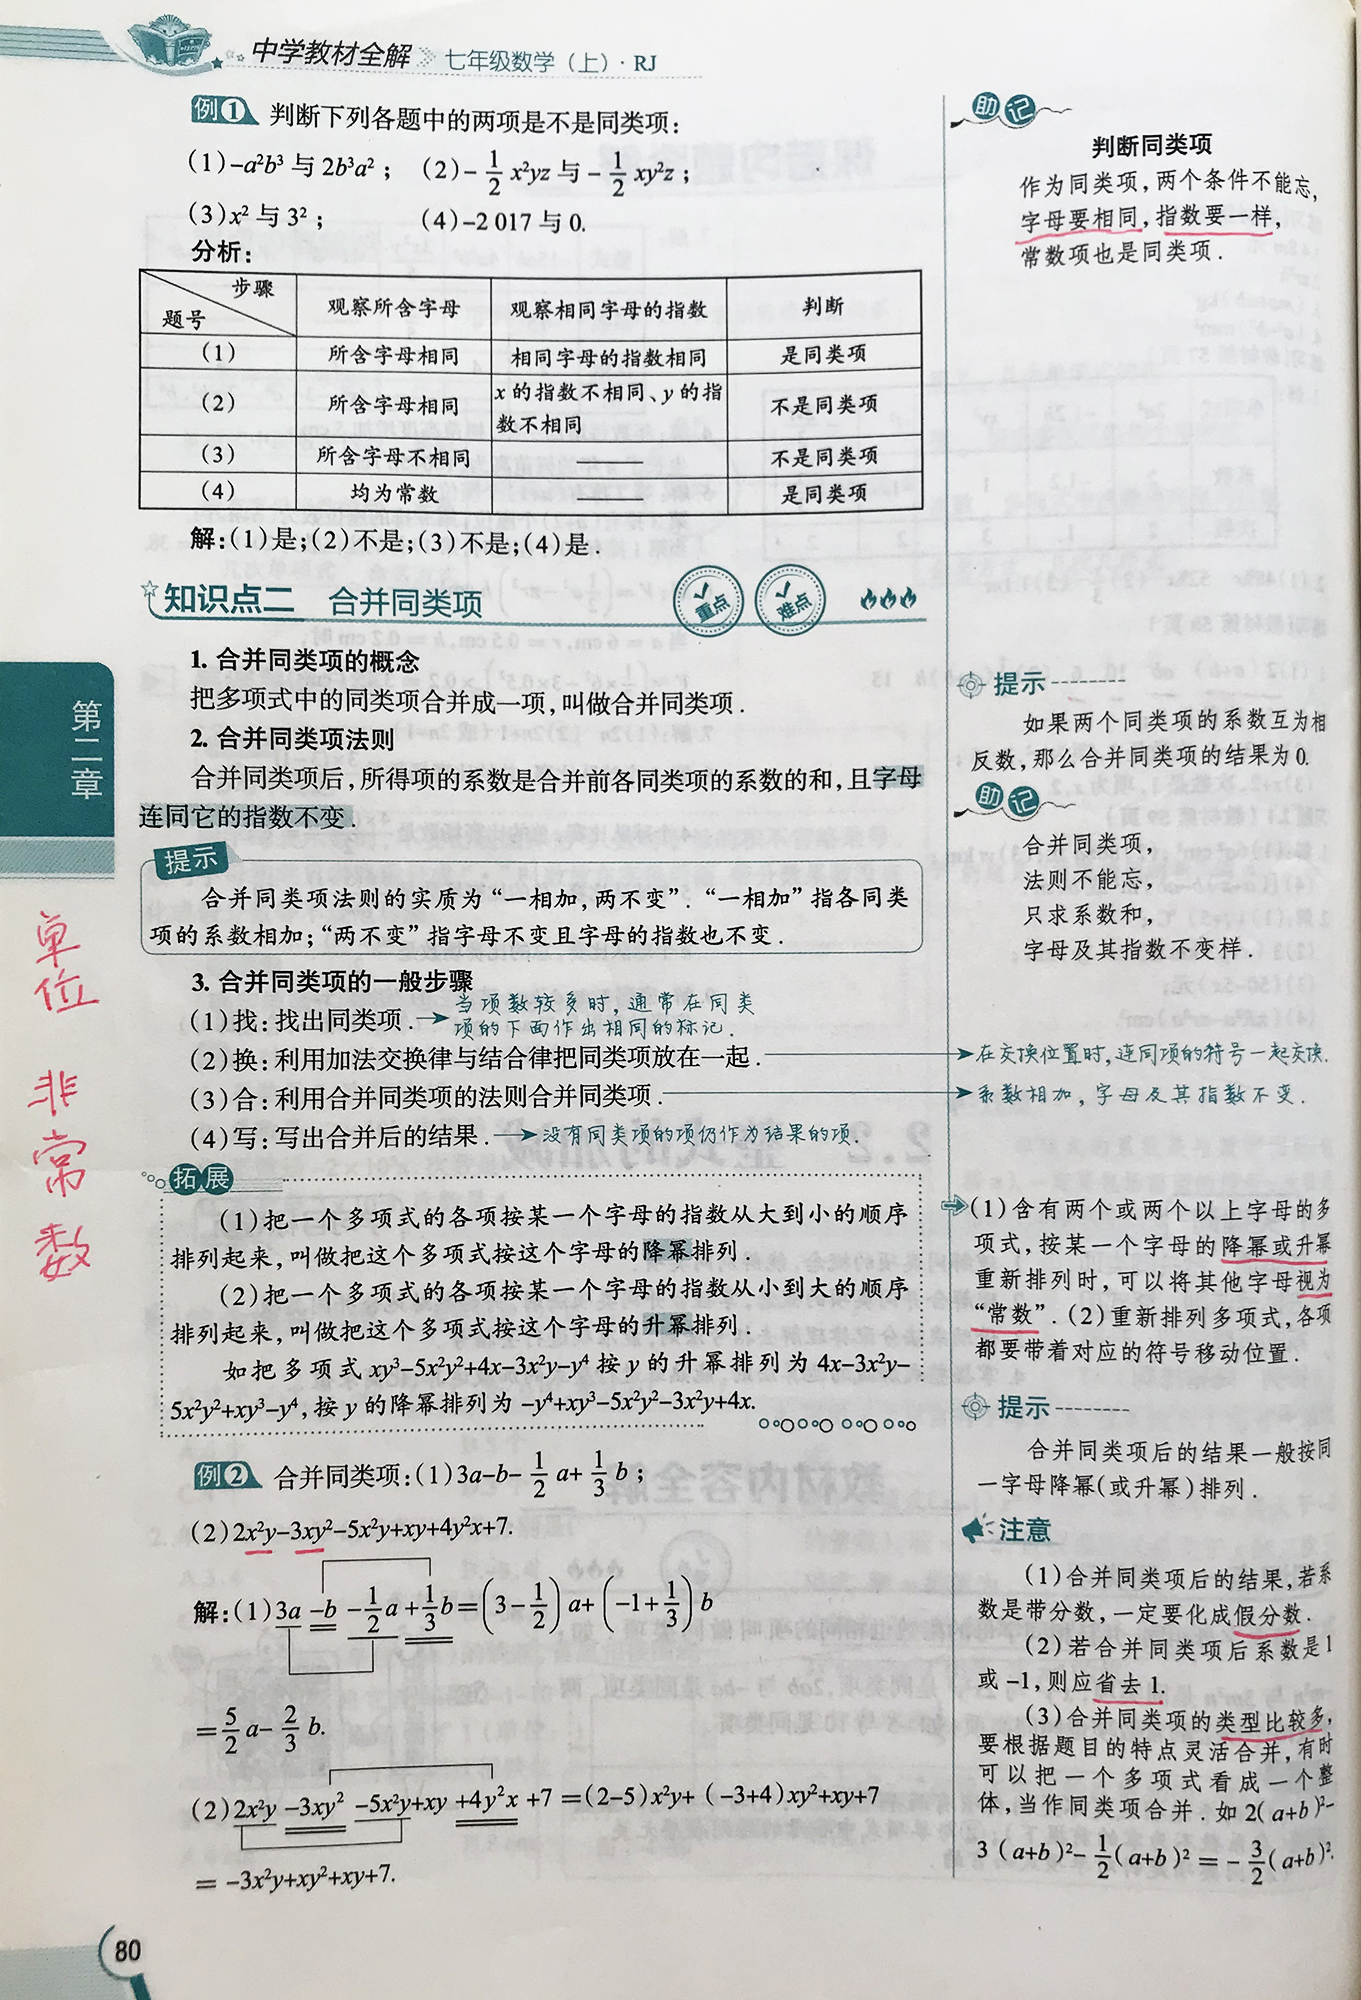 中学教材全解 七年级数学（上）·RJ
例1 判断下列各题中的两项是不是同类项：
(1)-a²b³与2b³a²； (2)-1/2 x²yz与-1/2 xy²z；
(3)x²与3²； (4)-2 017与0.
分析：
步骤
题号 观察所含字母 观察相同字母的指数 判断
(1) 所含字母相同 相同字母的指数相同 是同类项
(2) 所含字母相同 x的指数不相同、y的指
数不相同 不是同类项
(3) 所含字母不相同 —— 不是同类项
(4) 均为常数 —— 是同类项
解：(1)是；(2)不是；(3)不是；(4)是.
知识点二 合并同类项 重点 难点
1. 合并同类项的概念
把多项式中的同类项合并成一项，叫做合并同类项.
2. 合并同类项法则
合并同类项后，所得项的系数是合并前各同类项的系数的和，且字母
连同它的指数不变.
提示
合并同类项法则的实质为“一相加，两不变”.“一相加”指各同类
项的系数相加；“两不变”指字母不变且字母的指数也不变.
3. 合并同类项的一般步骤
(1)找：找出同类项. → 当项数较多时，通常在同类
项的下面作出相同的标记.
(2)换：利用加法交换律与结合律把同类项放在一起. → 在交换位置时，连同项的符号一起交换.
(3)合：利用合并同类项的法则合并同类项. → 系数相加，字母及其指数不变.
(4)写：写出合并后的结果. → 没有同类项的项仍作为结果的项.
拓展
(1)把一个多项式的各项按某一个字母的指数从大到小的顺序
排列起来，叫做把这个多项式按这个字母的降幂排列.
(2)把一个多项式的各项按某一个字母的指数从小到大的顺序
排列起来，叫做把这个多项式按这个字母的升幂排列.
如把多项式xy³-5x²y²+4x-3x²y-y⁴按y的升幂排列为4x-3x²y-
5x²y²+xy³-y⁴，按y的降幂排列为-y⁴+xy³-5x²y²-3x²y+4x.
例2 合并同类项：(1)3a-b-1/2 a+1/3 b；
(2)2x²y-3xy²-5x²y+xy+4y²x+7.
解：(1)3a-b-1/2 a+1/3 b=(3-1/2)a+(-1+1/3)b
=5/2 a-2/3 b.
(2)2x²y-3xy²-5x²y+xy+4y²x+7=(2-5)x²y+(-3+4)xy²+xy+7
=-3x²y+xy²+xy+7.
80
助记
判断同类项
作为同类项，两个条件不能忘，
字母要相同，指数要一样，
常数项也是同类项.
提示
如果两个同类项的系数互为相
反数，那么合并同类项的结果为0.
助记
合并同类项，
法则不能忘，
只求系数和，
字母及其指数不变样.
(1)含有两个或两个以上字母的多
项式，按某一个字母的降幂或升幂
重新排列时，可以将其他字母视为
“常数”.(2)重新排列多项式，各项
都要带着对应的符号移动位置.
提示
合并同类项后的结果一般按同
一字母降幂(或升幂)排列.
注意
(1)合并同类项后的结果，若系
数是带分数，一定要化成假分数.
(2)若合并同类项后系数是1
或-1，则应省去1.
(3)合并同类项的类型比较多，
要根据题目的特点灵活合并，有时
可以把一个多项式看成一个整
体，当作同类项合并.如2(a+b)²-
3(a+b)²-1/2(a+b)²=-3/2(a+b)².
第二章
单位
非常数